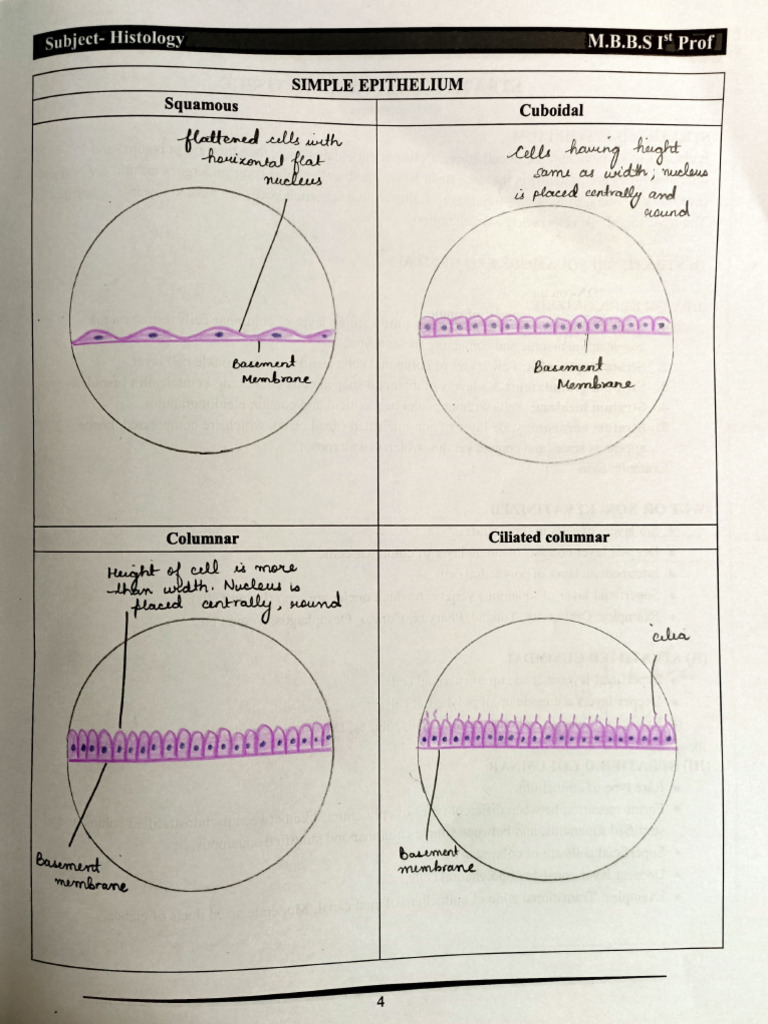 Subject- Histology
M.B.B.S Ist Prof
SIMPLE EPITHELIUM
Squamous
Cuboidal
flattened cells with
horizontal flat
nucleus
Basement
Membrane
Cells having height
same as width; nucleus
is placed centrally and
round
Basement
Membrane
Columnar
Ciliated columnar
Height of cell is more
than width. Nucleus is
placed centrally, round
Basement
membrane
cilia
Basement
membrane
4